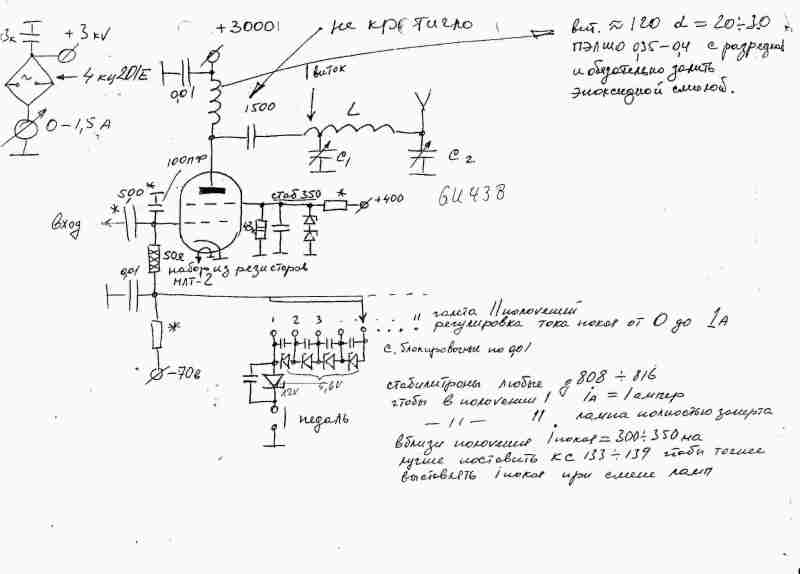 + 3 kv
3к
4 кц201Е
0-1,5 А
+3000 V
0,01
не критично
1 виток
1500
L
C1
C2
вит. ≈ 120 d = 20÷30
ПЭЛШО 035-0,4 с разрядкой
и обязательно залить
эпоксидной смолой.
100пф
500 *
*
вход
стаб 350
*
+400
GU43B
50Ω
набор из резисторов
МЛТ-2
0,01
*
-70в
1 2 3
12V
5,6V
педаль
галета 11 положений
регулировка тока покоя от 0 до 1А
С. блокировочн по 0,01
стабилитроны любые Д 808 ÷ 816
чтобы в положении 1 iA = 1 ампер
— 11 — 11 лампа полностью заперта
вблизи положения i покоя = 300÷350 ма
лучше поставить КС 133 ÷ 139 чтобы точнее
выставлять i покоя при смене ламп